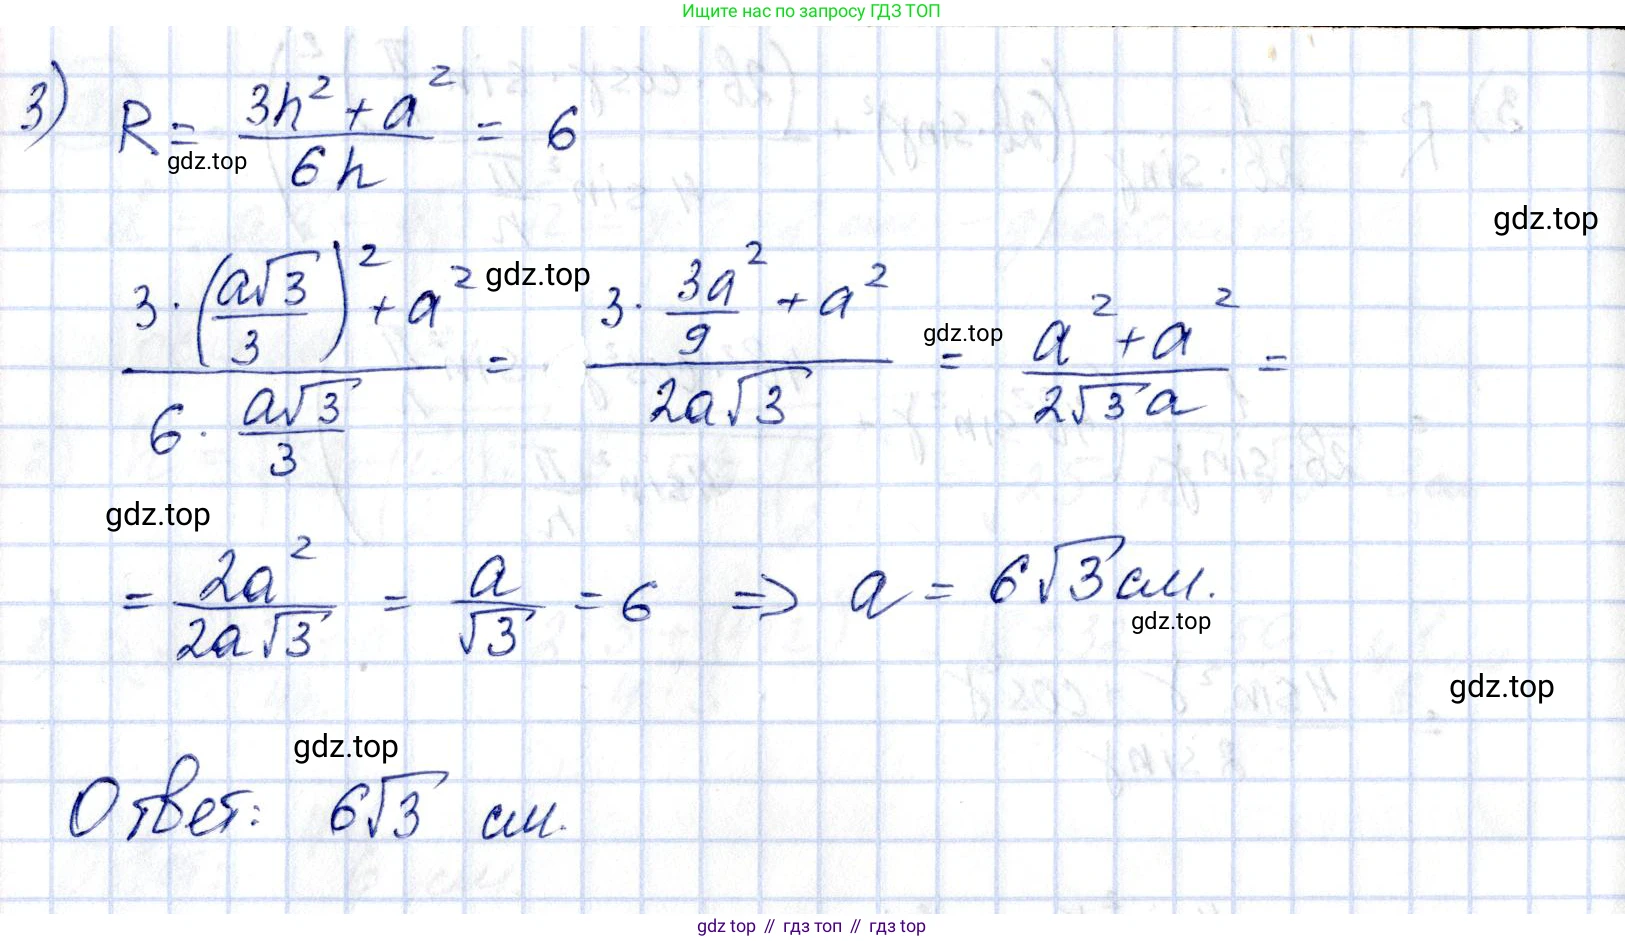 Ищите нас по запросу ГДЗ ТОП
3) R = (3h² + a²)/(6h) = 6
gdz.top
gdz.top
(3·(a√3/3)² + a²)/(6·a√3/3) = (3·3a²/9 + a²)/(2a√3) = (a² + a²)/(2√3a) =
gdz.top
gdz.top
gdz.top
= 2a²/(2a√3) = a/√3 = 6 ⇒ a = 6√3 см.
gdz.top
gdz.top
gdz.top
Ответ: 6√3 см.
gdz top // гдз топ // гдз top